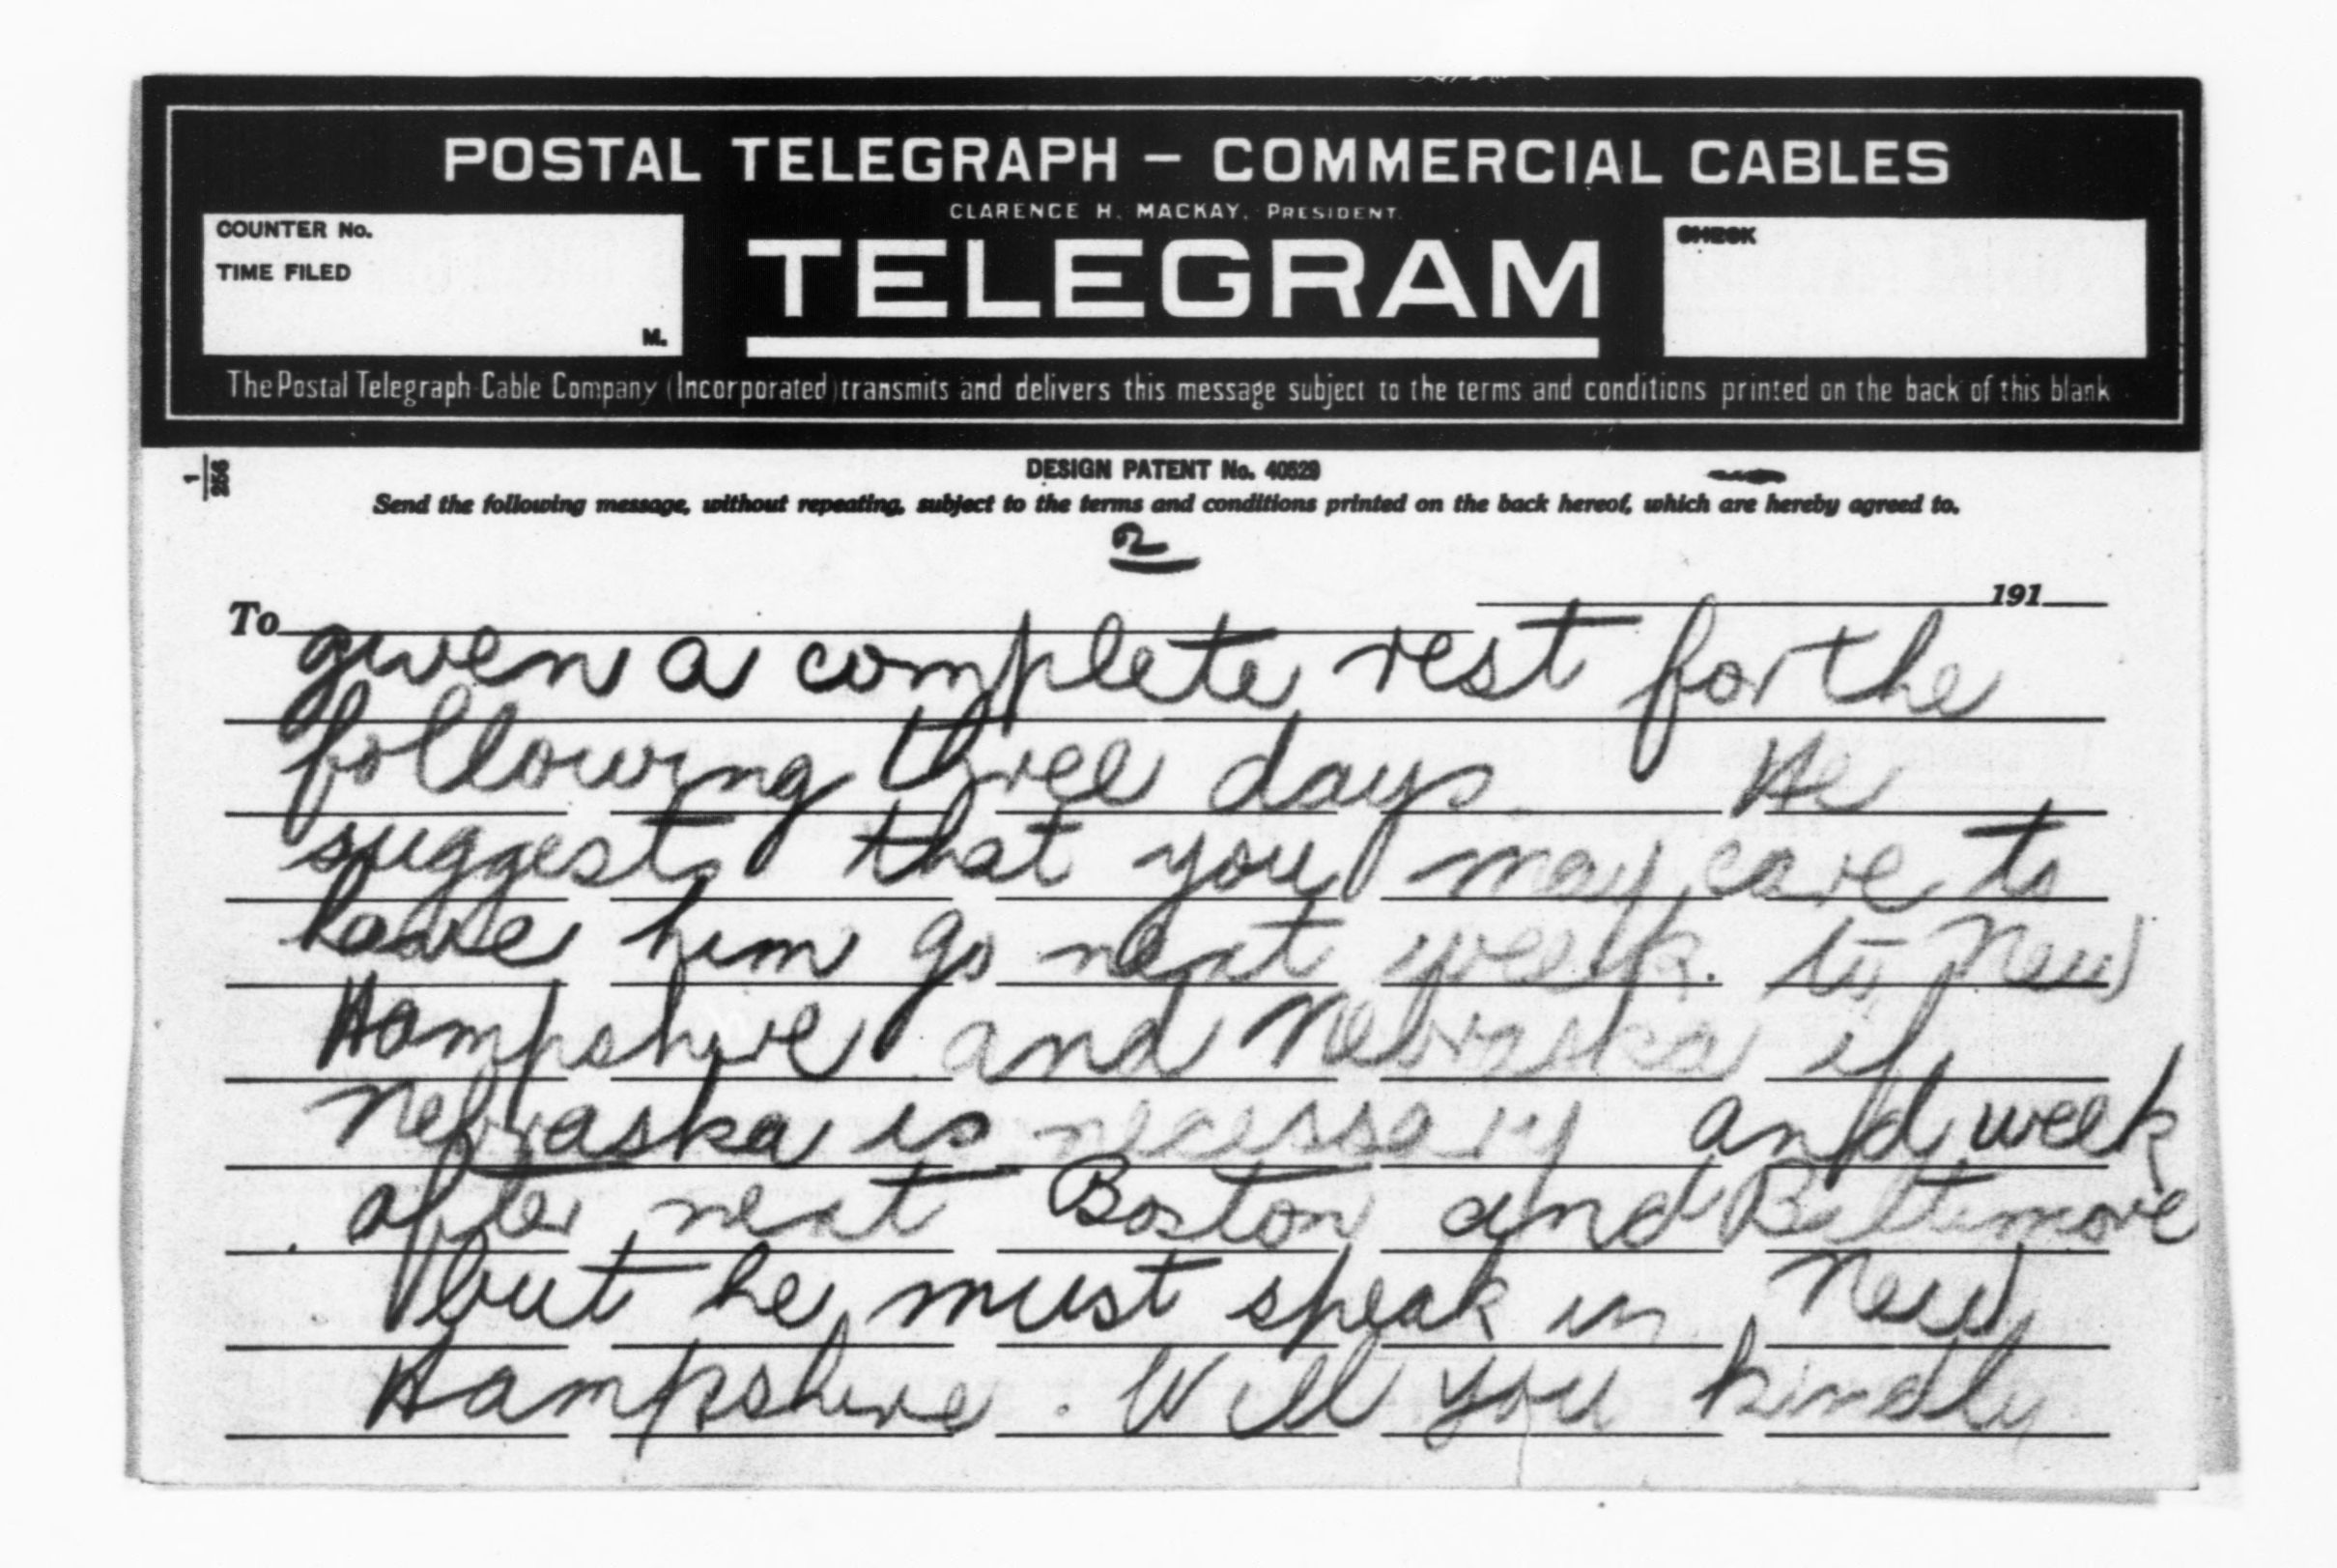 POSTAL TELEGRAPH – COMMERCIAL CABLES
CLARENCE H. MACKAY, PRESIDENT.
COUNTER No.
TIME FILED
M.
TELEGRAM
CHECK
The Postal Telegraph-Cable Company (Incorporated) transmits and delivers this message subject to the terms and conditions printed on the back of this blank
1
256
DESIGN PATENT No. 40529
Send the following message, without repeating, subject to the terms and conditions printed on the back hereof, which are hereby agreed to.
2
191
To
given a complete rest for the
following three days. He
suggests that you may care to
have him go next week to New
Hampshire and Nebraska if
Nebraska is necessary and week
after next Boston and Baltimore
but he must speak in New
Hampshire. Will you kindly